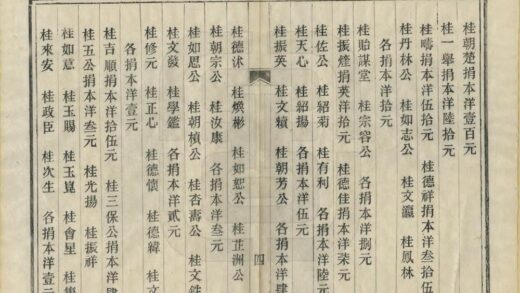 桂朝楚捐本洋壹百元
桂一舉捐本洋陸拾元
桂疇捐本洋伍拾元 桂德祥捐本洋叁拾伍
桂丹林公 桂如志公 桂文瀛 桂鳳林
各捐本洋拾元
桂貽謀堂 桂宗容公 各捐本洋捌元
桂振煃捐英洋拾元 桂德佳捐本洋柒元
桂佐公 桂紹菊 桂有利 各捐本洋陸元
桂天心 桂紹揚 各捐本洋伍元
桂振英 桂文䫫 桂朝芳公 各捐本洋肆
四
桂德沭 桂煥彬 桂如恕公 桂正洲公
桂朝宗公 桂汝康 各捐本洋叁元
桂如恩公 桂朝楨公 桂杏壽公 桂文
桂文發 桂學鑑 各捐本洋貳元
桂修元 桂正心 桂德懷 桂德緯 桂文
各捐本洋壹元
桂吉順捐本洋拾伍元 桂三保公捐本洋肆
桂五公捐本洋叁元 桂光揚 桂振祥
桂如意 桂玉賜 桂玉崑 桂會星 桂
桂來安 桂政臣 桂次生 各捐本洋壹元